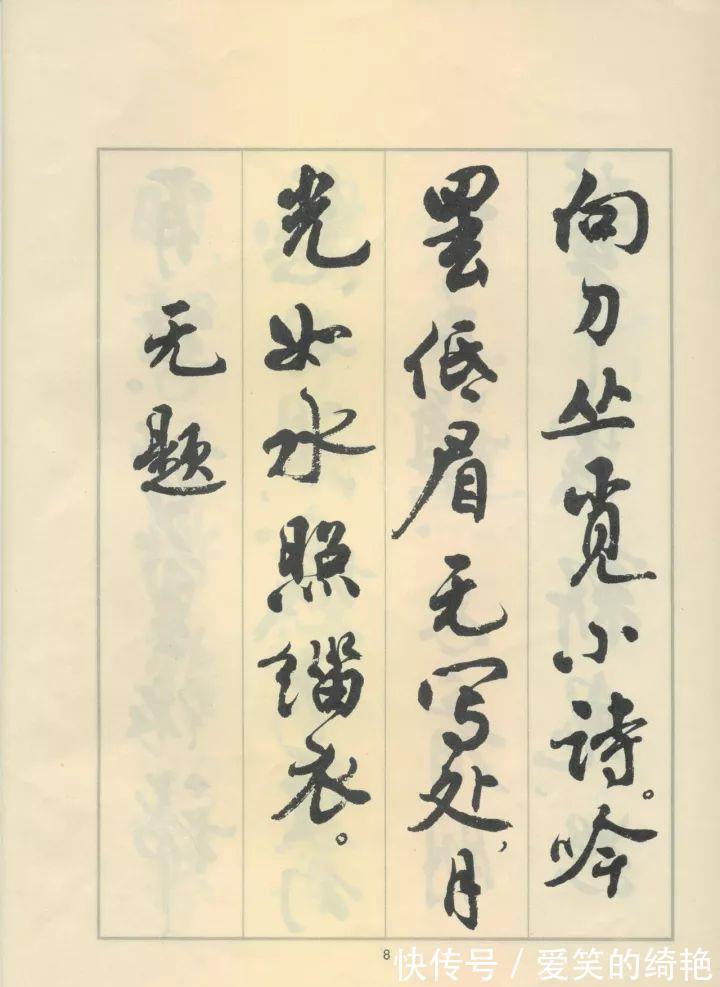 向刀丛觅小诗。吟
罢低眉无写处，月
光如水照缁衣。
无题
8
快传号/爱笑的绮艳